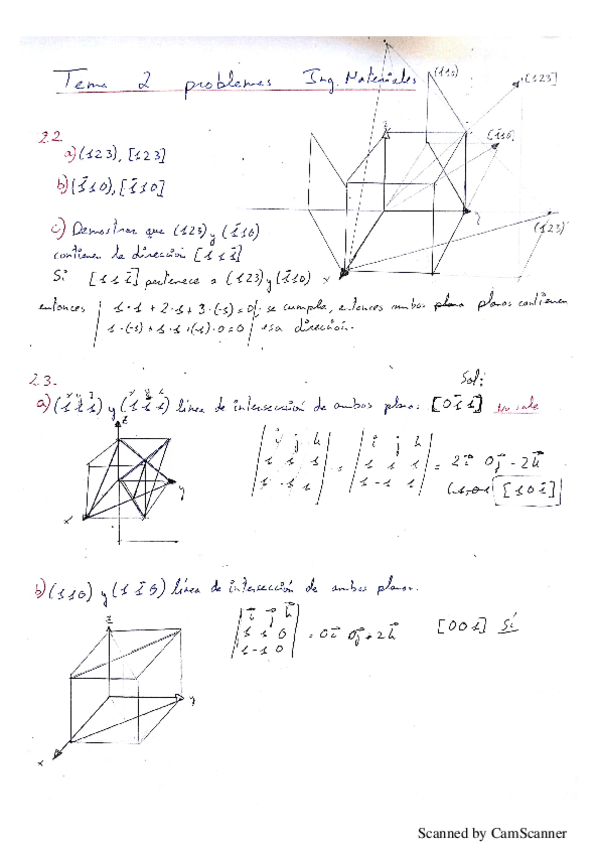 Tema 2 problemas Ing. Materiales
(110)
[123]
2.2
a) (123), [123]
b) (1̄10), [1̄10]
[1̄10]
z
y
(123)
c) Demostrar que (123) y (1̄10)
contienen la dirección [111̄]
Si [111̄] pertenece a (123) y (1̄10)
x
entonces | 1·1 + 2·1 + 3·(-1) = 0 | se cumple, entonces ambos planos contienen
| 1·(-1) + 1·1 + (-1)·0 = 0 | esa dirección.
2.3.
Sol:
a) y línea de intersección de ambos planos. [01̄1] no sale
z
y
x
| i j k |
| 1 1 1 |
= | i j k |
| 1 1 1 |
| 1 -1 1 |
= 2i 0j - 2k
[101̄]
b) (110) y (11̄0) línea de intersección de ambos planos.
z
y
x
| i j k |
| 1 1 0 |
| 1 -1 0 |
= 0i 0j + 2k
[001] Sí
Scanned by CamScanner